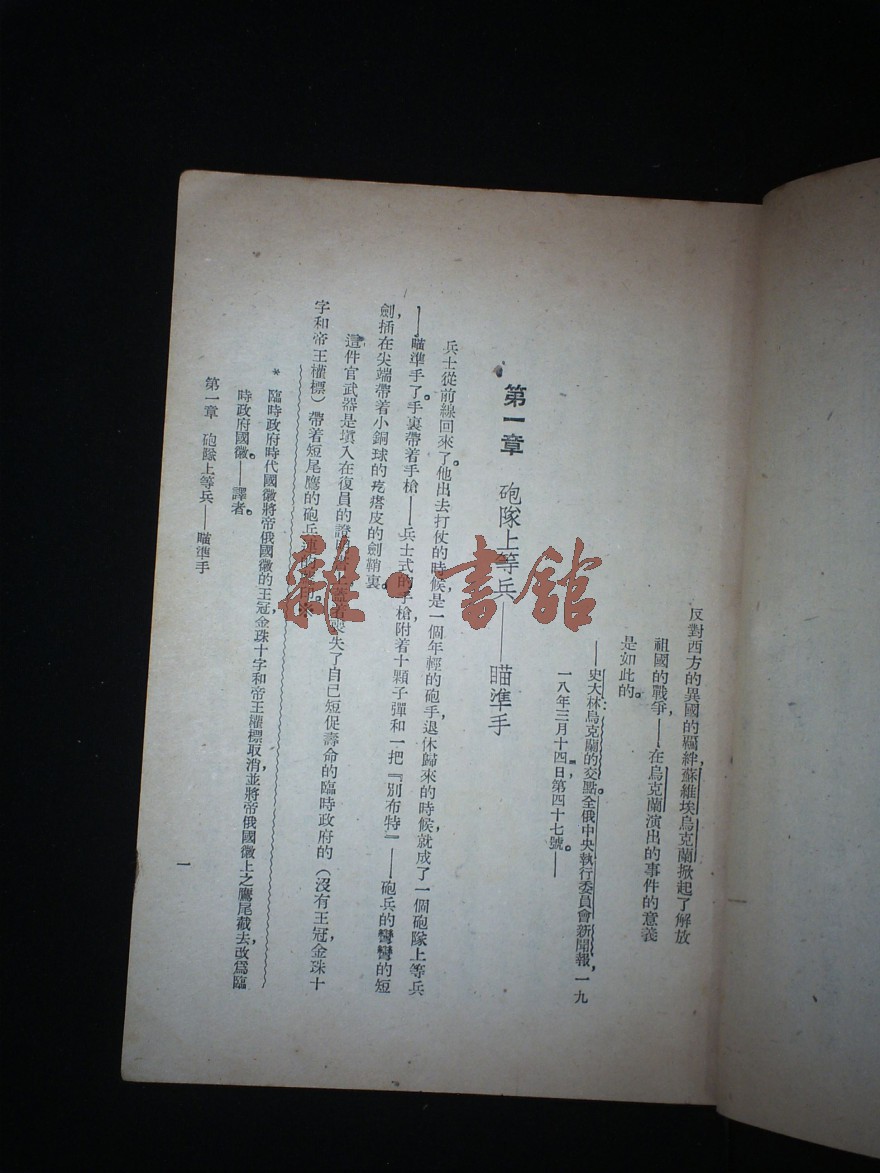 反對西方的異國的羈絆,蘇維埃烏克蘭掀起了解放
祖國的戰爭——在烏克蘭演出的事件的意義,
是如此的。
——史大林:烏克蘭的交點。全俄中央執行委員會新聞報,一九
一八年三月十四日,第四十七號。——
第一章 砲隊上等兵——瞄準手
兵士從前線回來了。他出去打仗的時候是一個年輕的砲手,退休歸來的時候,就成了一個砲隊上等兵
——瞄準手了。手裏帶着手槍——兵士式的手槍,附着十顆子彈和一把『別布特』——砲兵的彎彎的短
劍,插在尖端帶着小銅球的疙瘩皮的劍鞘裏。
這件官武器是塡入在復員的證明
失了自己短促壽命的臨時政府的(沒有王冠,金珠十
字和帝王權標)帶着短尾鷹的砲兵連的
* 臨時政府時代國徽將帝俄國徽的王冠,金珠十字和帝王權標取消,並將帝俄國徽上之鷹尾截去,改爲臨
時政府國徽——譯者。
第一章 砲隊上等兵——瞄準手
一
雜·書館